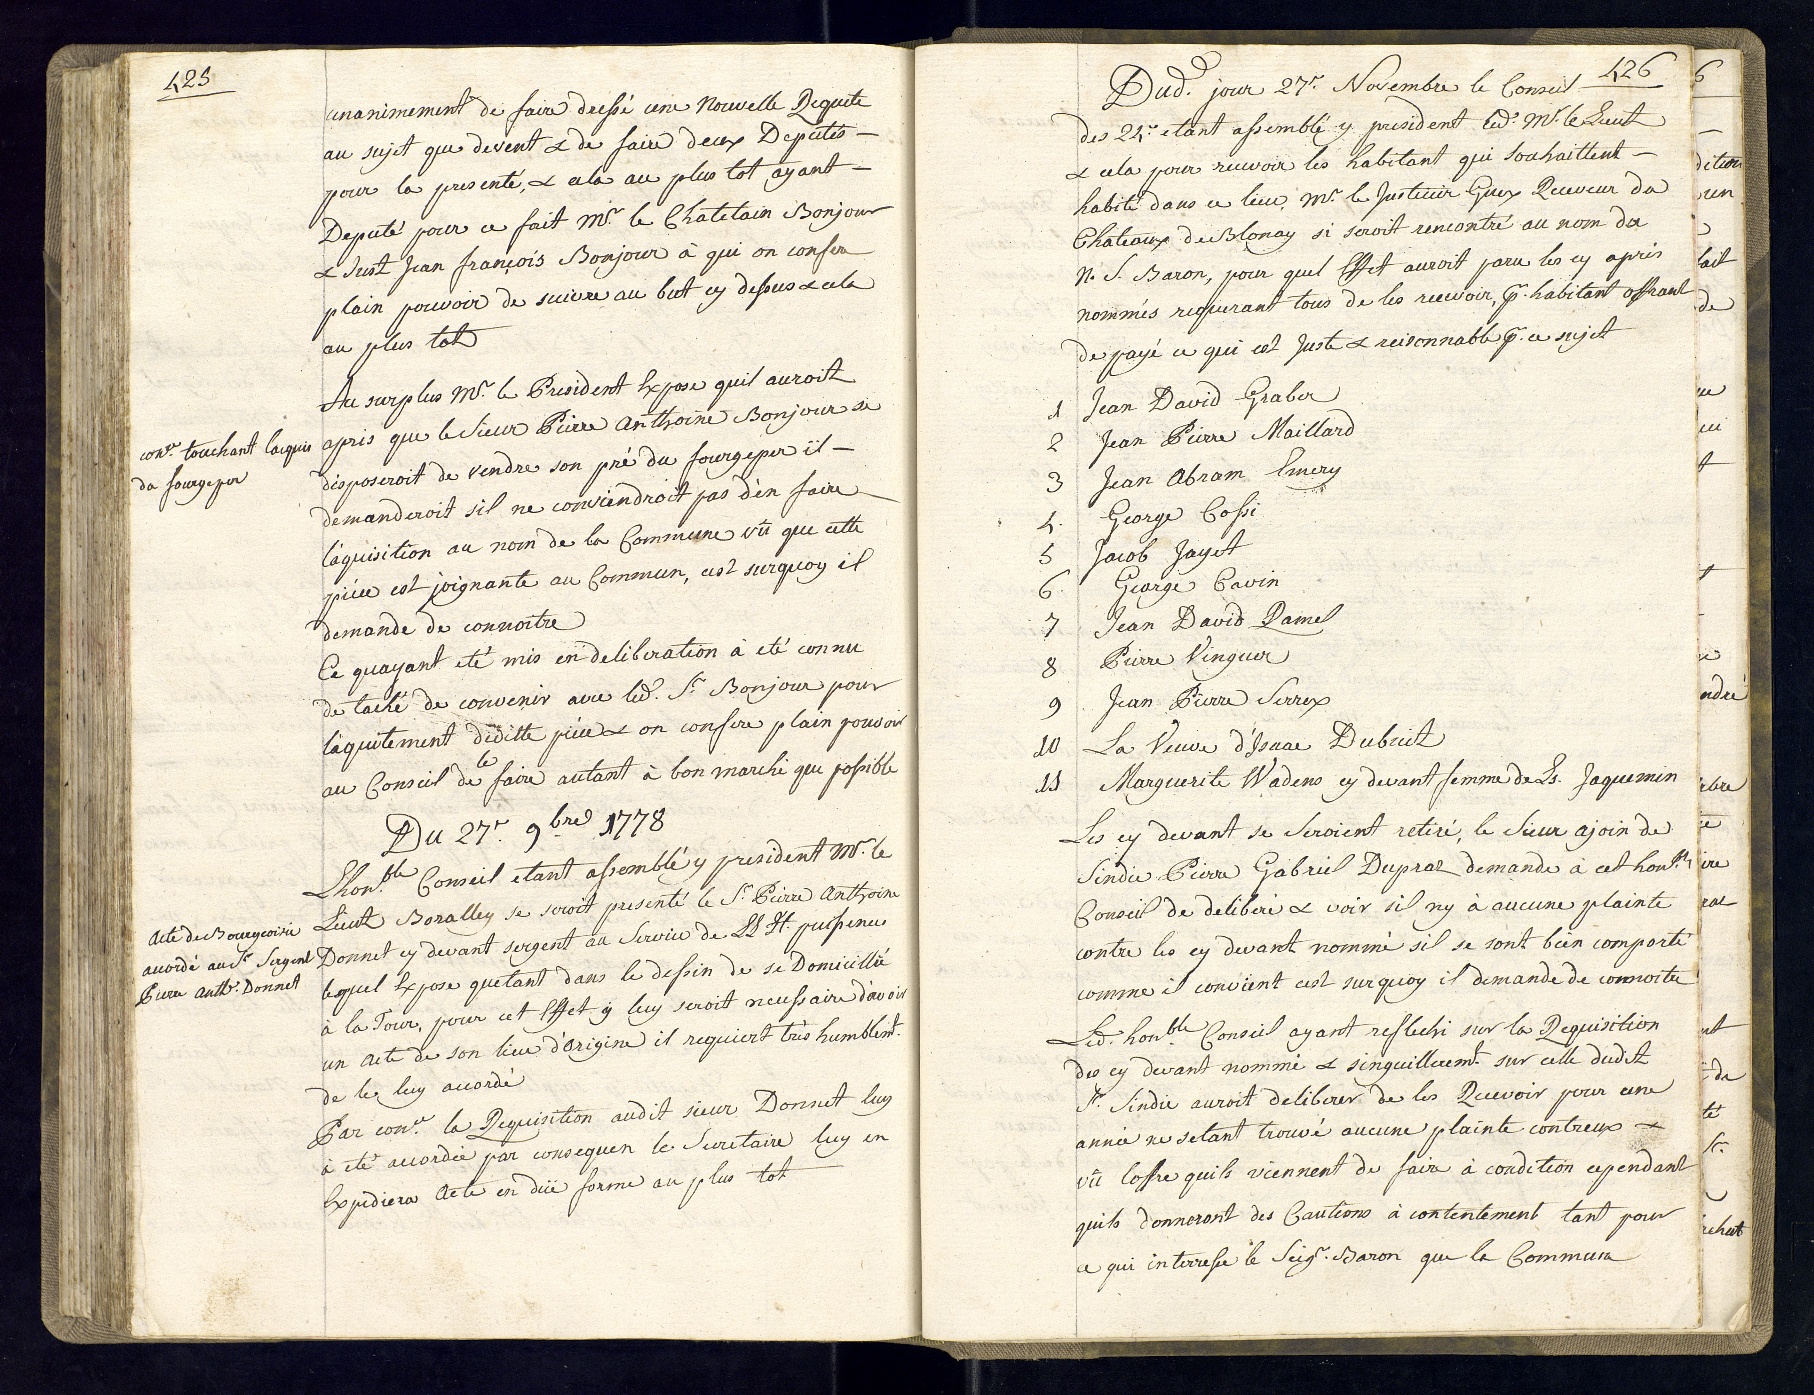 425
unanimement de faire dressé une Nouvelle Requete
au sujet que devent & de faire deux Deputés
pour la presenté, & cela au plus tot ayant
Deputé pour ce fait Mr. le Chatelain Bonjour
& Just Jean françois Bonjour à qui on confere
plain pouvoir de suivre au but cy dessus & cela
au plus tot
Au surplus Mr. le President Expose quil auroit
conr. touchant laquis
du fourgeper
apris que le Sieur Pierre Anthoine Bonjour se
disposeroit de vendre son pré du fourgeper il
demanderoit sil ne conviendroit pas d'en faire
l'aquisition au nom de la Commune vû que cette
piece est joignante au Commun, cest surquoy il
demande de connoitre
Ce quayant eté mis en deliberation à eté connu
de taché de convenir avec led. Sr. Bonjour pour
l'aquitement dditte piece & on confere plain pouvoir
au Conseil de le faire autant à bon marché que possible
Du 27e. 9bre 1778
Lhonble Conseil etant assemblé y president Mr. le
Acte de Bourgeoisie
accordé au Sr. Sergent
Pierre Anthe. Donnet
Lieut Boralley se seroit presenté le Sr. Pierre Anthoine
Donnet cy devant sergent au Service de LL Ht. puissence
lequel Expose quetant dans le dessin de se Domicillié
à la Tour, pour cet Effet y luy seroit necessaire d'avoir
un acte de son lieu d'origine il requiert très humblemt.
de les luy accordé
Par conr. la Requisition audit sieur Donnet luy
à eté accordée par consequen le Secretaire luy en
Expediera Acte en düe forme au plus tot
426
Dud. jour 27e. Novembre le Conseil
des 24e. etant assemblé y president led. Mr. le Lieut
& cela pour recevoir les habitant qui souhaittent
habité dans ce lieu, Mr. le Justicier Guex Receveur du
Chateaux de Blonay si seroit rencontré au nom du
N. S. Baron, pour quel Effet auroit paru les cy apres
nommés requerant tous de les recevoir, pr. habitant offrant
de payé ce qui est Juste & reisonnable pr. ce sujet
1 Jean David Graber
2 Jean Pierre Maillard
3 Jean Abram Emery
4. George Cossi
5 Jacob Jayet
6. George Cavin
7 Jean David Ramel
8 Pierre Vinguer
9 Jean Pierre Serrex
10 La Veuve d'Isaac Dubruit
11 Marguerite Wadens cy devant femme de Ls. Jaquemin
Les cy devant se Seroient retiré, le Sieur ajoin de
Sindic Pierre Gabriel Dupraz demande à cet honble
Conseil de deliberé & voir sil ny à aucune plainte
contre les cy devant nommé sil se sont bien comporté
comme il convient cest surquoy il demande de connoitre
Led. honble Conseil ayant reflechi sur la Requisition
des cy devant nommé & singuillieremt. sur celle dudit
Sr. Sindic auroit deliberer de les Recevoir pour une
année ne setant trouvé aucune plainte contreux &
vû loffre quils viennent de faire à condition cependant
quils donneront des Cautions à contentement tant pour
ce qui interresse le Seigr. Baron que la Commune